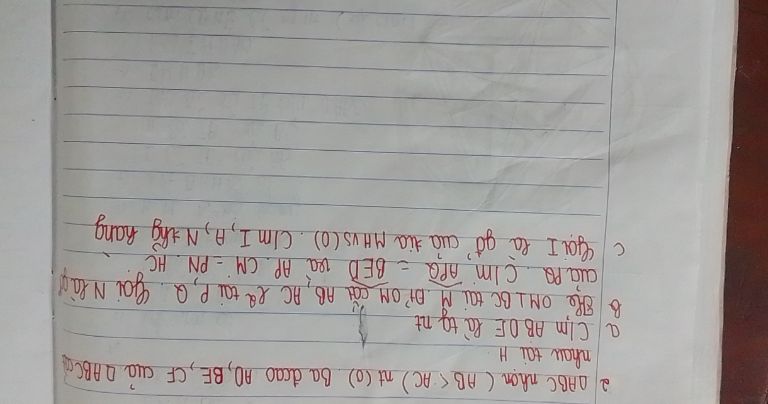 2 ΔABC nhọn (AB < AC) nt (O). Ba đcao AD, BE, CF của ΔABC cắt
nhau tại H
a C/m ABDE là tg nt
b Kẻ OM ⊥ BC tại M. OM cắt AB, AC lần tại P, Q. Gọi N là gđ
của PQ. C/m APQ = BED và AP. CM = PN. HC
c Gọi I là gđ của tia MH vs (O). C/m I, A, N thg hàng